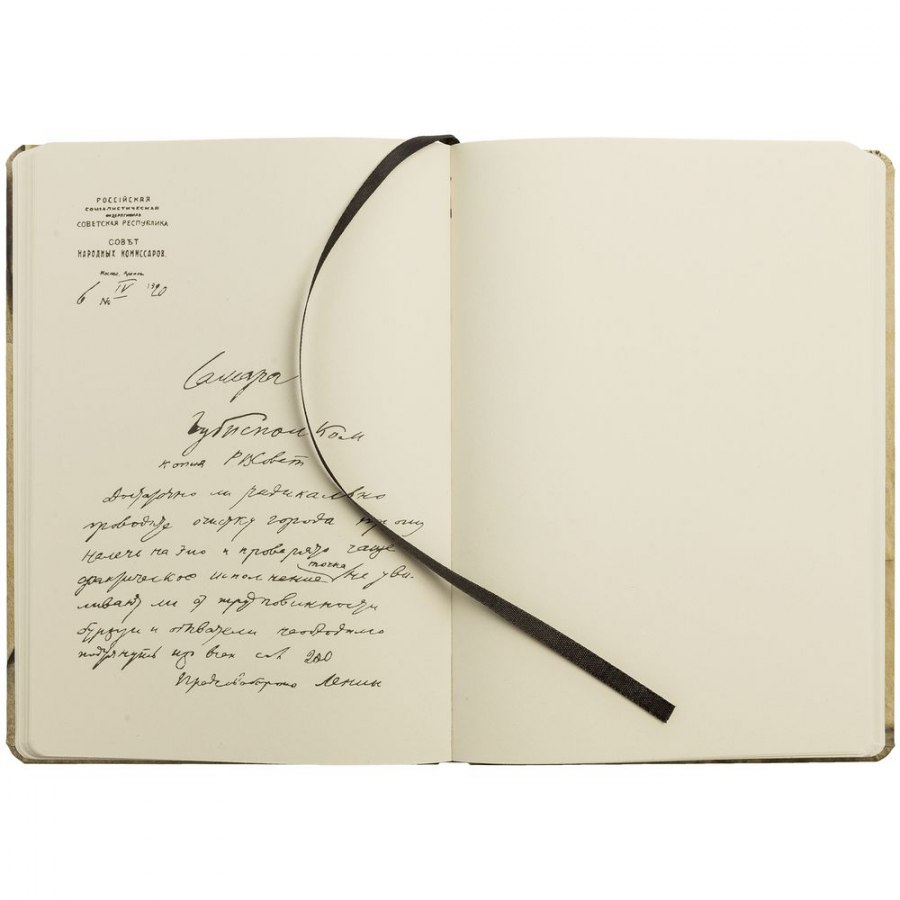 РОССІЙСКАЯ
СОЦІАЛИСТИЧЕСКАЯ
ФЕДЕРАТИВНАЯ
СОВЕТСКАЯ РЕСПУБЛИКА
СОВѢТ
НАРОДНЫХ КОМИССАРОВ.
Москва, Кремль
6 IV 1920
№
Самара
Губисполком
копия РКСовет
Достаточно ли радикально
проводите очистку города прошу
налечь на это и проверять чаще
фактическое исполнение точка не уви-
ливают ли от трудповинности
буржуи и обыватели необходимо
подтянуть изо всех сил 200
Предсовобороны Ленин